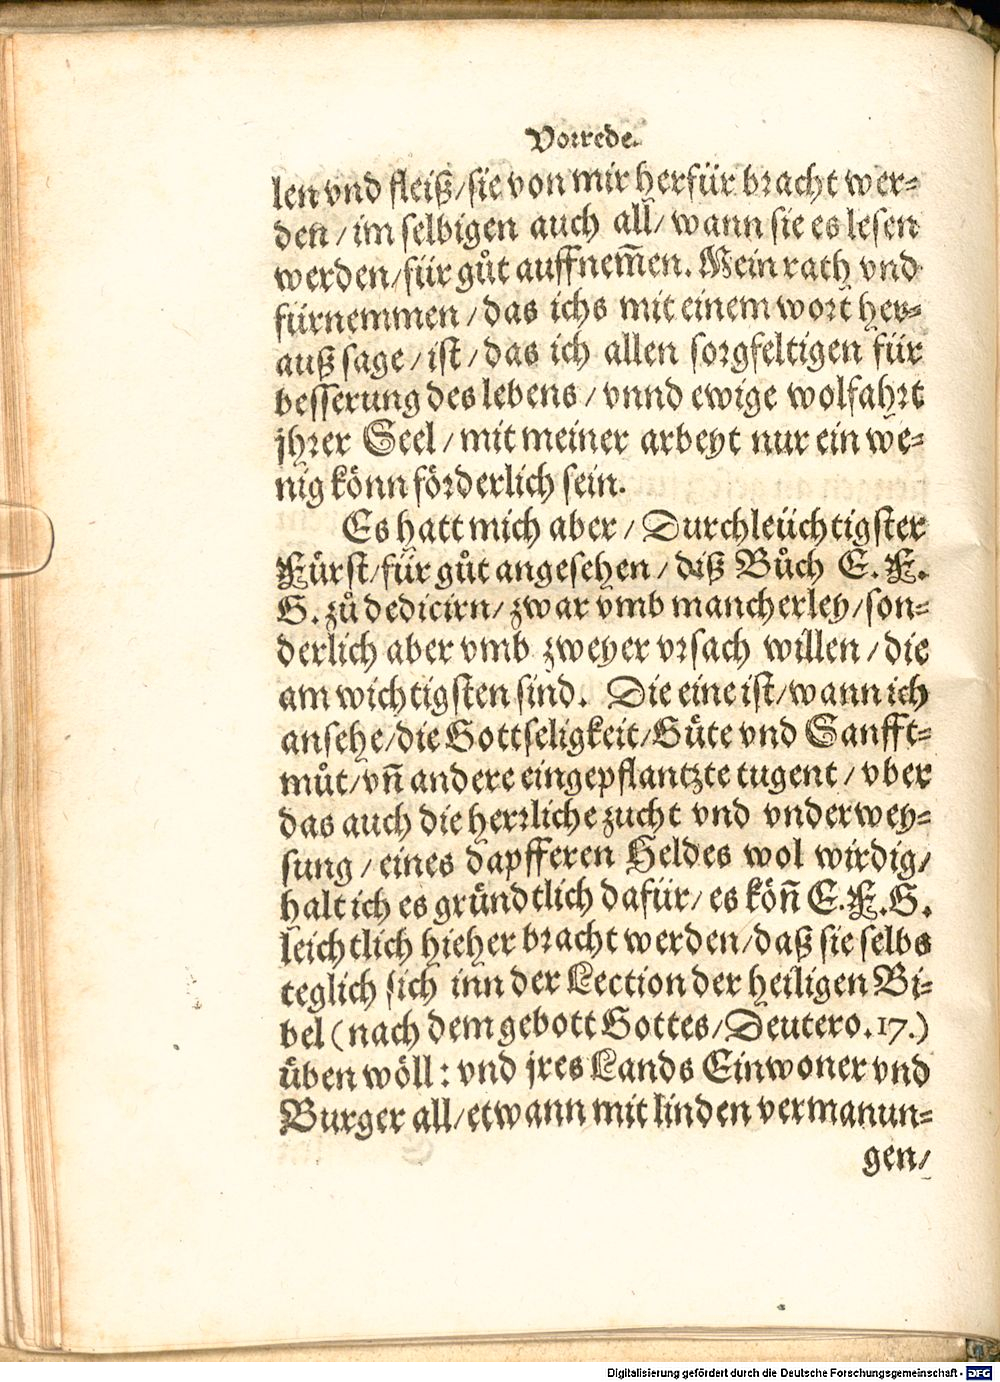 Vorrede.
len vnd fleiß/sie von mir herfür bracht wer-
den/im selbigen auch all/wann sie es lesen
werden/für gůt auffnem̄en. Mein rath vnd
fürnemmen/das ichs mit einem wort her-
auß sage/ist/das ich allen sorgfeltigen für
besserung des lebens/vnnd ewige wolfahrt
jhrer Seel/mit meiner arbeyt nur ein we-
nig könn förderlich sein.
Es hatt mich aber/Durchleüchtigster
Fürst/für gůt angesehen/diß Bůch E. F.
G. zů dedicirn/zwar vmb mancherley/son-
derlich aber vmb zweyer vrsach willen/die
am wichtigsten sind. Die eine ist/wann ich
ansehe/die Gottseligkeit/Güte vnd Sanfft-
můt/vn̄ andere eingepflantzte tugent/vber
das auch die herrliche zucht vnd vnderwey-
sung/eines dapfferen Heldes wol wirdig/
halt ich es gründtlich dafür/es kön̄ E.F.G.
leichtlich hieher bracht werden/daß sie selbs
teglich sich inn der Lection der heiligen Bi-
bel (nach dem gebott Gottes/Deutero.17.)
üben wöll: vnd jres Lands Einwoner vnd
Burger all/etwann mit linden vermanun-
gen/
Digitalisierung gefördert durch die Deutsche Forschungsgemeinschaft - DFG